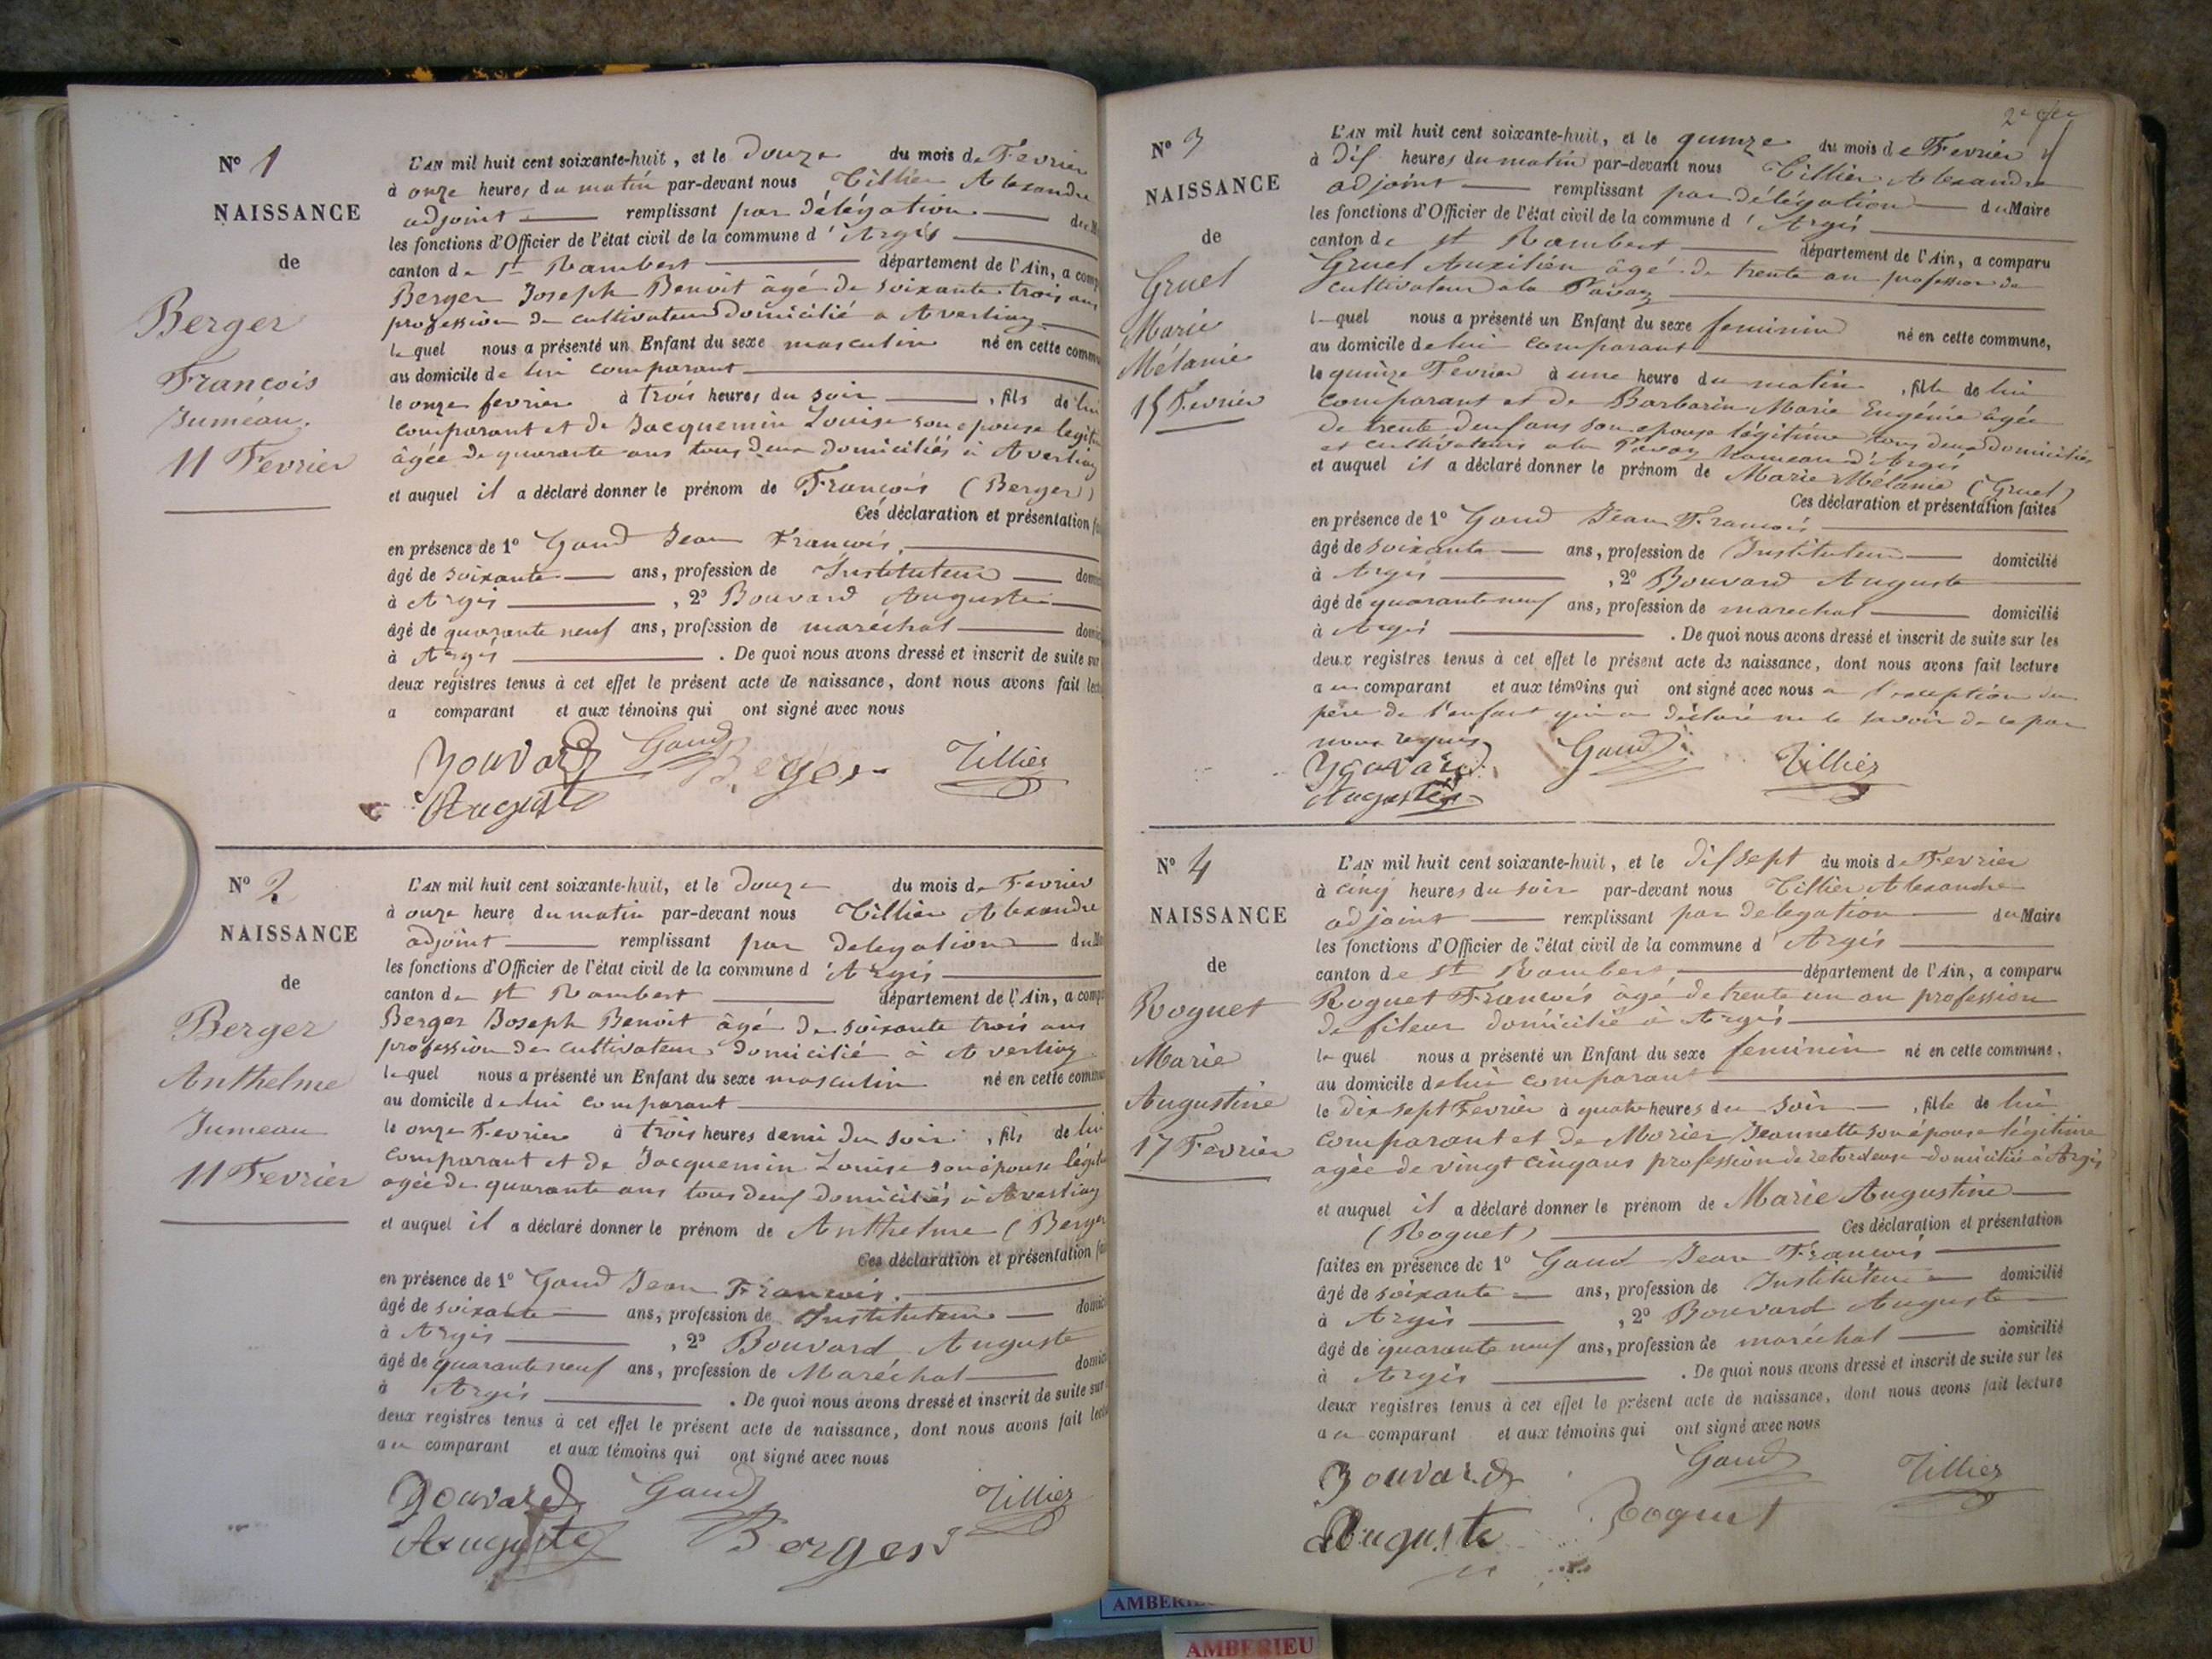 N° 1
NAISSANCE
de
Berger
François
Jumeau.
11 Fevrier
L'AN mil huit cent soixante-huit, et le douze du mois de Fevrier
à onze heures du matin par-devant nous Tillier Alexandre
adjoint remplissant par délégation du M
les fonctions d'Officier de l'état civil de la commune d'Argis
canton de St Rambert département de l'Ain, a comp
Berger Joseph Benoit âgé de soixante trois ans
profession de cultivateur domicilié a Averliaz
lequel nous a présenté un Enfant du sexe masculin né en cette commu
au domicile de lui comparant
le onze fevrier à trois heures du soir, fils de lui
comparant et de Jacquemin Louise son epouse legiti
âgée de quarante ans tous deux domiciliés à Averliaz
et auquel il a déclaré donner le prénom de François (Berger)
Ces déclaration et présentation fa
en présence de 1° Gaud Jean François.
âgé de soixante ans, profession de Instituteur domic
à Argis, 2° Bouvard Auguste
âgé de quarante neuf ans, profession de maréchal domic
à Argis. De quoi nous avons dressé et inscrit de suite sur
deux registres tenus à cet effet le présent acte de naissance, dont nous avons fait lect
a comparant et aux témoins qui ont signé avec nous
Bouvard Gaud Berger Tillier
Auguste
N° 2
NAISSANCE
de
Berger
Anthelme
Jumeau
11 Fevrier
L'AN mil huit cent soixante-huit, et le douze du mois de Fevrier
à onze heure du matin par-devant nous Tillier Alexandre
adjoint remplissant par delegation du M
les fonctions d'Officier de l'état civil de la commune d'Argis
canton de St Rambert département de l'Ain, a comp
Berger Joseph Benoit âgé de soixante trois ans
profession de cultivateur domicilié à Averliaz
lequel nous a présenté un Enfant du sexe masculin né en cette commun
au domicile de lui comparant
le onze Fevrier à trois heures demi du soir, fils de lui
comparant et de Jacquemin Louise son épouse légiti
agée de quarante ans tous deux domiciliés à Averliaz
et auquel il a déclaré donner le prénom de Anthelme (Berger
Ces déclaration et présentation fai
en présence de 1° Gaud Jean François.
âgé de soixante ans, profession de Instituteur domic
à Argis, 2° Bouvard Auguste
âgé de quarante neuf ans, profession de Maréchal domic
à Argis. De quoi nous avons dressé et inscrit de suite sur
deux registres tenus à cet effet le présent acte de naissance, dont nous avons fait lect
au comparant et aux témoins qui ont signé avec nous
Bouvard Gaud Tillier
Auguste Berger
N° 3
NAISSANCE
de
Gruel
Marie
Mélanie
15 Fevrier
L'AN mil huit cent soixante-huit, et le quinze du mois de Fevrier
à dix heures du matin par-devant nous Tillier Alexandre
adjoint remplissant par délégation du Maire
les fonctions d'Officier de l'état civil de la commune d'Argis
canton de St Rambert département de l'Ain, a comparu
Gruel Auxilien âgé de trente an profession de
cultivateur a la
lequel nous a présenté un Enfant du sexe feminin né en cette commune,
au domicile de lui comparant
le quinze Fevrier à une heure du matin, fille de lui
comparant et de Barbarin Marie Eugénie âgée
de trente deux ans son epouse légitime tous deux domiciliés
et cultivateurs a la hameau d'Argis
et auquel il a déclaré donner le prénom de Marie Mélanie (Gruel)
Ces déclaration et présentation faites
en présence de 1° Gaud Jean François
âgé de soixante ans, profession de Instituteur domicilié
à Argis, 2° Bouvard Auguste
âgé de quarante neuf ans, profession de marechal domicilié
à Argis. De quoi nous avons dressé et inscrit de suite sur les
deux registres tenus à cet effet le présent acte de naissance, dont nous avons fait lecture
au comparant et aux témoins qui ont signé avec nous a l'exception du
père de l'enfant qui a déclaré ne le savoir de ce par
nous requis
Bouvard Gaud Tillier
Auguste
N° 4
NAISSANCE
de
Roguet
Marie
Augustine
17 Fevrier
L'AN mil huit cent soixante-huit, et le dix sept du mois de Fevrier
à cinq heures du soir par-devant nous Tillier Alexandre
adjoint remplissant par delegation du Maire
les fonctions d'Officier de l'état civil de la commune d'Argis
canton de St Rambert département de l'Ain, a comparu
Roguet François âgé de trente un an profession
de fileur domicilié à Argis
lequel nous a présenté un Enfant du sexe feminin né en cette commune,
au domicile de lui comparant
le dix sept Fevrier à quatre heures du soir, fille de lui
comparant et de Morier Jeannette son épouse légitime
agée de vingt cinq ans profession de retordeuse domiciliée à Argis
et auquel il a déclaré donner le prénom de Marie Augustine
(Roguet) Ces déclaration et présentation
faites en présence de 1° Gaud Jean François
âgé de soixante ans, profession de Instituteur domicilié
à Argis, 2° Bouvard Auguste
âgé de quarante neuf ans, profession de maréchal domicilié
à Argis. De quoi nous avons dressé et inscrit de suite sur les
deux registres tenus à cet effet le présent acte de naissance, dont nous avons fait lecture
au comparant et aux témoins qui ont signé avec nous
Bouvard Gaud Tillier
Auguste Roguet
AMBERIEU